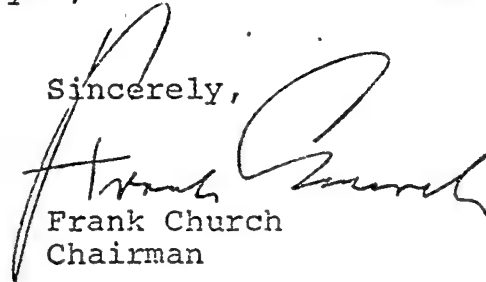 Sincerely,
Frank Church
Frank Church
Chairman